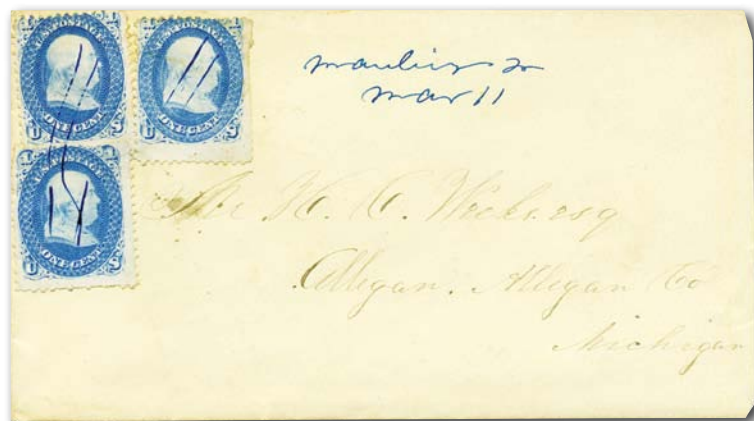 U.S. POSTAGE
ONE CENT
U S
U.S. POSTAGE
ONE CENT
U S
U.S. POSTAGE
ONE CENT
U S
Mar 11
H. C. Weeks. esq
Allegan. Allegan Co
Michigan